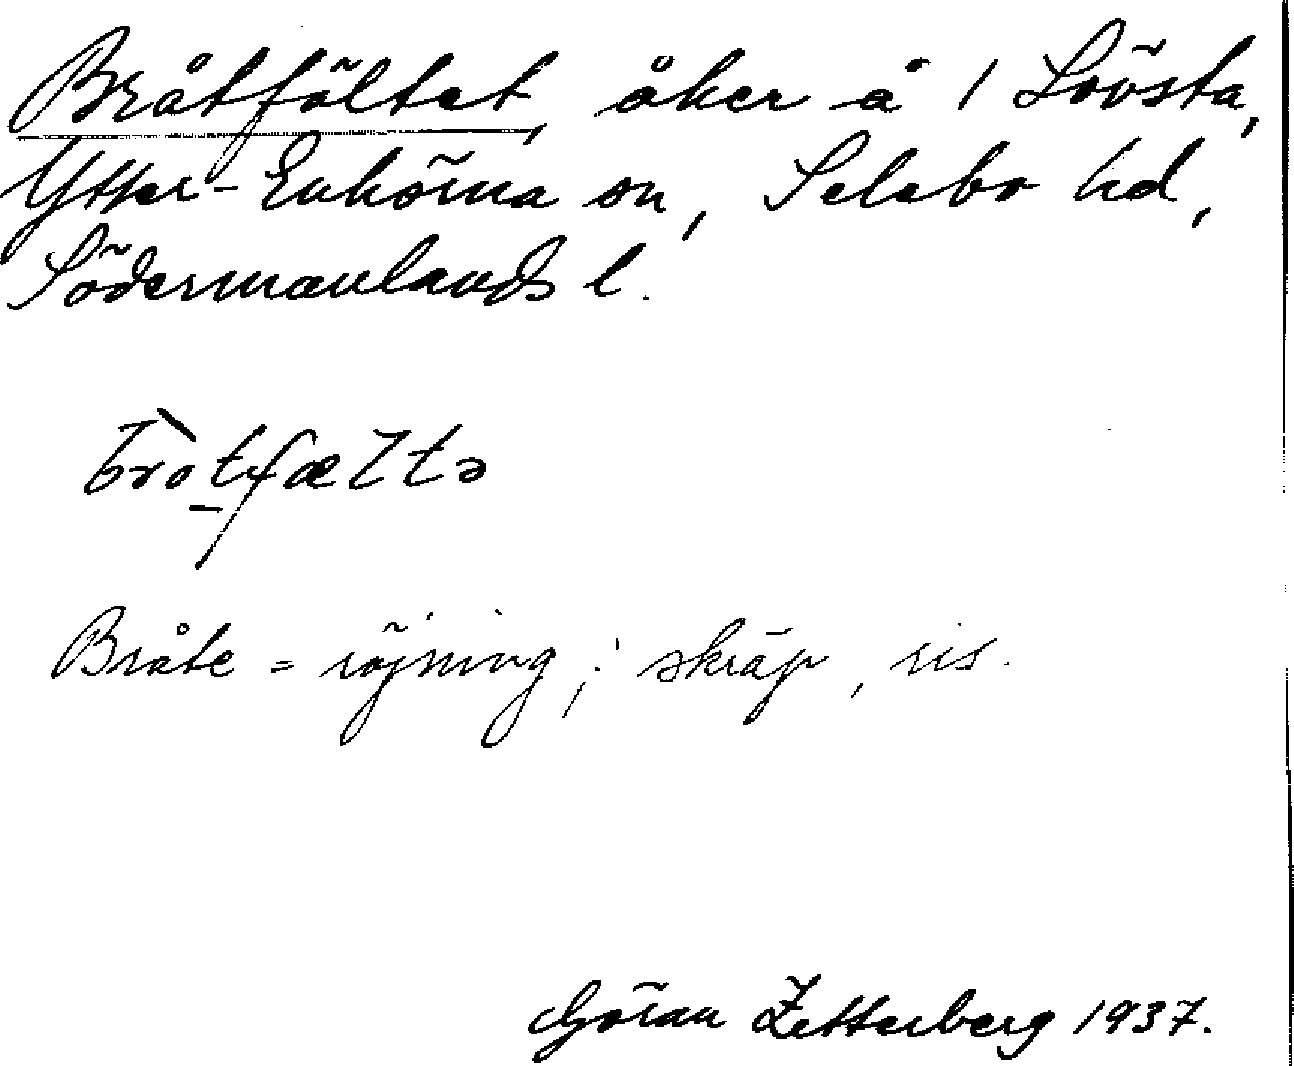 Bråtfältet, åker å 1 Lövsta,
Ytter-Enhörna sn, Selebo hd,
Södermanlands l.
bròtfæltə
Bråte = röjning; skräp, ris.
Göran Zetterberg 1937.